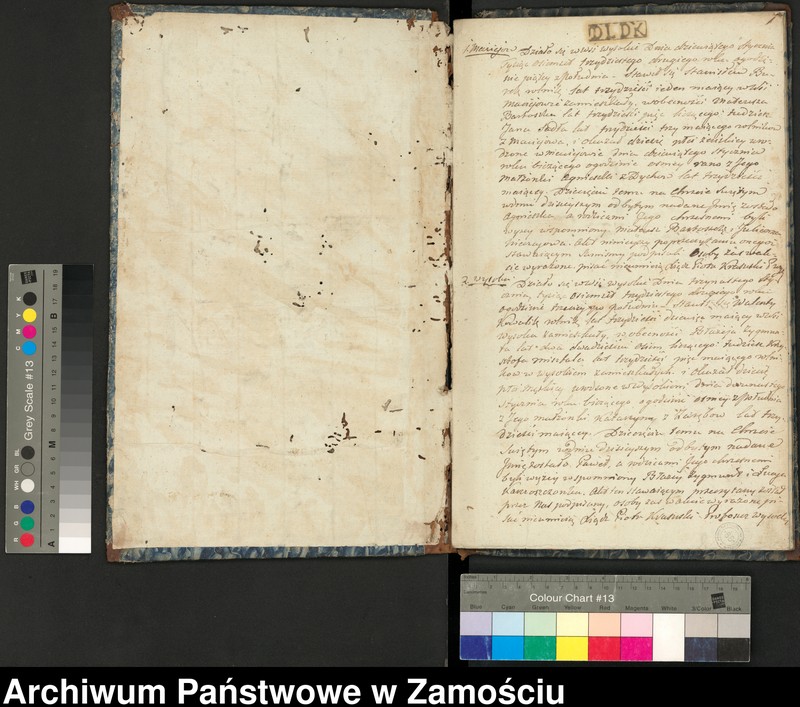 DLDK
1
1. Maciejów Działo się we wsi Wysokie Dnia dziewiątego Stycznia
tysiąc osiemset trzydziestego drugiego roku, o godzi-
nie piątej z południa. Stawił się Stanisław
rolnik, lat trzydzieści jeden mający w wsi
Maciejowie zamieszkały, w obecności Mateusza
Bartoszka lat trzydzieści pięć liczącego tudzież
Jana Sadło lat trzydzieści trzy mającego rolników
z Maciejowa, i okazał dziecię płci żeńskiej uro-
dzone w Maciejowie dnia dziewiątego Stycznia
roku bieżącego o godzinie osmej rano z Jego
małżonki Agnieszki z Dychów lat trzydzieści
mającej. Dziecięciu temu na Chrzcie Świętym
w dniu dzisiejszym odbytym nadane Imię zostało
Agnieszka, a rodzicami Jego chrzestnemi byli
wyżej wspomniony Mateusz Bartoszek i Julianna
Akt niniejszy po przeczytaniu onego
stawającym Sami my podpisali. Osoby zaś w ak-
cie wyrażone pisać nieumieją Xiądz Piotr
2. Wysokie Działo się w wsi Wysokie Dnia trzynastego sty-
cznia, tysiąc osiemset trzydziestego drugiego roku, o
godzinie trzeciej po południu, Stawił się Walenty
Kowalik rolnik, lat trzydzieści dziewięć mający w wsi
Wysokie zamieszkały, w obecności Błażeja Zygmun-
ta lat dwadzieścia osim liczącego tudzież Krzy-
sztofa lat trzydzieści pięć mającego rolni-
ków w Wysokiem zamieszkałych i okazał dziecię
płci męskiej urodzone w Wysokiem Dnia dwunastego
stycznia roku bieżącego o godzinie osmej z południa
z Jego małżonki Katarzyny z lat trzy-
dzieści mającej. Dziecięciu temu na Chrzcie
Świętym w dniu dzisiejszym odbytym nadane
Imię zostało Paweł, a rodzicami Jego chrzestnemi
byli wyżej wspomniony Błażej Zygmunt i
Akt ten stawającym przeczytany został
przez Nas podpisany, osoby zaś w akcie wyrażone pi-
sać nieumieją Xiądz Piotr Proboszcz Wysocki
Grey Scale #13
R G B WH GR BL C M Y K
A M B 15 17 18 19
Colour Chart #13
Blue Cyan Green Yellow Red Magenta White 3/Color Black
Archiwum Państwowe w Zamościu